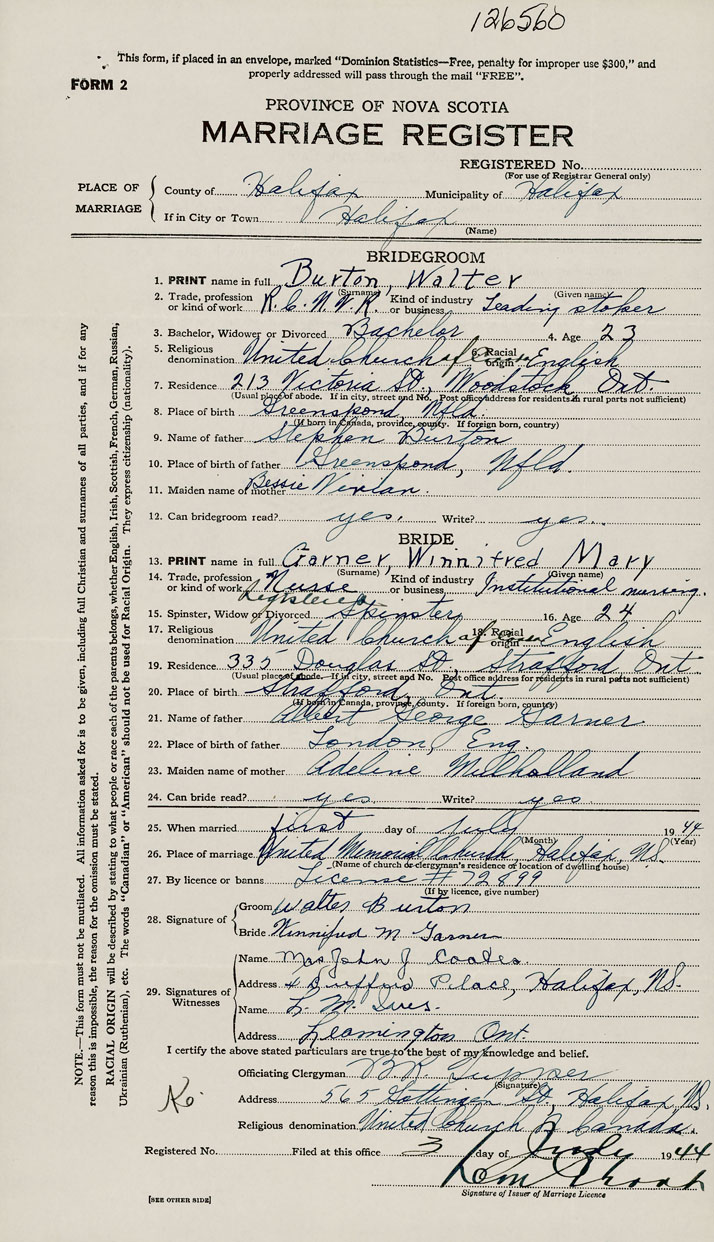 126560
This form, if placed in an envelope, marked "Dominion Statistics—Free, penalty for improper use $300," and
properly addressed will pass through the mail "FREE".
FORM 2
PROVINCE OF NOVA SCOTIA
MARRIAGE REGISTER
REGISTERED No.
(For use of Registrar General only)
PLACE OF MARRIAGE
County of Halifax Municipality of Halifax
If in City or Town Halifax
(Name)
BRIDEGROOM
1. PRINT name in full Burton, Walter
(Surname) (Given name)
2. Trade, profession or kind of work R.C.N.V.R. Kind of industry or business Leading stoker
3. Bachelor, Widower or Divorced Bachelor 4. Age 23
5. Religious denomination United Church of 6. Racial origin English
7. Residence 213 Victoria St., Woodstock Ont.
(Usual place of abode. If in city, street and No. Post office address for residents in rural parts not sufficient)
8. Place of birth Greenspond, Nfld.
(If born in Canada, province, county. If foreign born, country)
9. Name of father Stephen Burton
10. Place of birth of father Greenspond, Nfld.
11. Maiden name of mother Bessie
12. Can bridegroom read? yes. Write? yes.
BRIDE
13. PRINT name in full Garner, Winnifred Mary
(Surname) (Given name)
14. Trade, profession or kind of work Nurse Registered Kind of industry or business Institutional nursing.
15. Spinster, Widow or Divorced Spinster 16. Age 24
17. Religious denomination United Church of 18. Racial origin English
19. Residence 335 Douglas St., Strafford Ont.
(Usual place of abode. If in city, street and No. Post office address for residents in rural parts not sufficient)
20. Place of birth Strafford, Ont.
(If born in Canada, province, county. If foreign born, country)
21. Name of father Albert George Garner
22. Place of birth of father London, Eng.
23. Maiden name of mother Adeline Milholland
24. Can bride read? yes Write? yes
25. When married first day of July 1944
(Month) (Year)
26. Place of marriage United Memorial Church, Halifax, N.S.
(Name of church or clergyman's residence or location of dwelling house)
27. By licence or banns License # 72899
(If by licence, give number)
28. Signature of
Groom Walter Burton
Bride Winnifred M Garner
29. Signatures of Witnesses
Name Mrs John J Coates
Address 4 Place, Halifax, N.S.
Name L. M. Ives.
Address Leamington Ont.
I certify the above stated particulars are true to the best of my knowledge and belief.
Officiating Clergyman Tupper
(Signature)
Address 565 Gottingen St, Halifax, N.S.
Religious denomination United Church of Canada.
Registered No. Filed at this office 3 day of July 1944
Signature of Issuer of Marriage Licence
[SEE OTHER SIDE]
NOTE.—This form must not be mutilated. All information asked for is to be given, including full Christian and surnames of all parties, and if for any
reason this is impossible, the reason for the omission must be stated.
RACIAL ORIGIN will be described by stating to what people or race each of the parents belongs, whether English, Irish, Scottish, French, German, Russian,
Ukrainian (Ruthenian), etc. The words "Canadian" or "American" should not be used for Racial Origin. They express citizenship (nationality).